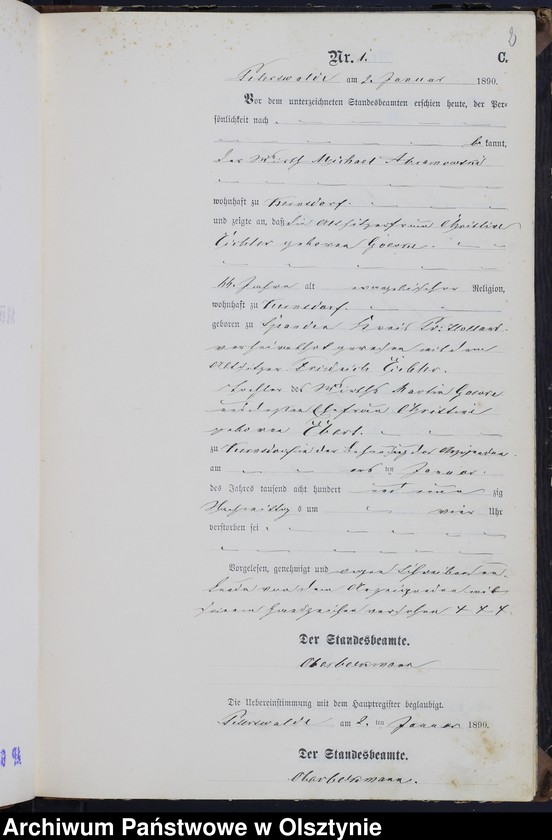 8
Nr. 1. C.
am 2. Januar 1890.
Vor dem unterzeichneten Standesbeamten erschien heute, der Per-
sönlichkeit nach
be kannt,
der Wirth Michael
wohnhaft zu
und zeigte an, daß die Altsitzerfrau Christine
geboren
Jahre alt evangelischer Religion,
wohnhaft zu
geboren zu Spanden Kreis Pr: Holland
verheirathet gewesen mit dem
Altsitzer Friedrich
Tochter des Wirths Martin
und dessen Ehefrau Christine
geborene Ebert.
zu in der Behausung des Anzeigenden
am ersten Januar
des Jahres tausend acht hundert und neun zig
Nachmittag s um vier Uhr
verstorben sei
Vorgelesen, genehmigt und wegen Schreibens un-
kunde von dem Anzeigenden mit
seinem Handzeichen versehen + + +
Der Standesbeamte.
Oberbeckmann
Die Uebereinstimmung mit dem Hauptregister beglaubigt.
am 2. ten Januar 1890.
Der Standesbeamte.
Oberbeckmann.
Archiwum Państwowe w Olsztynie